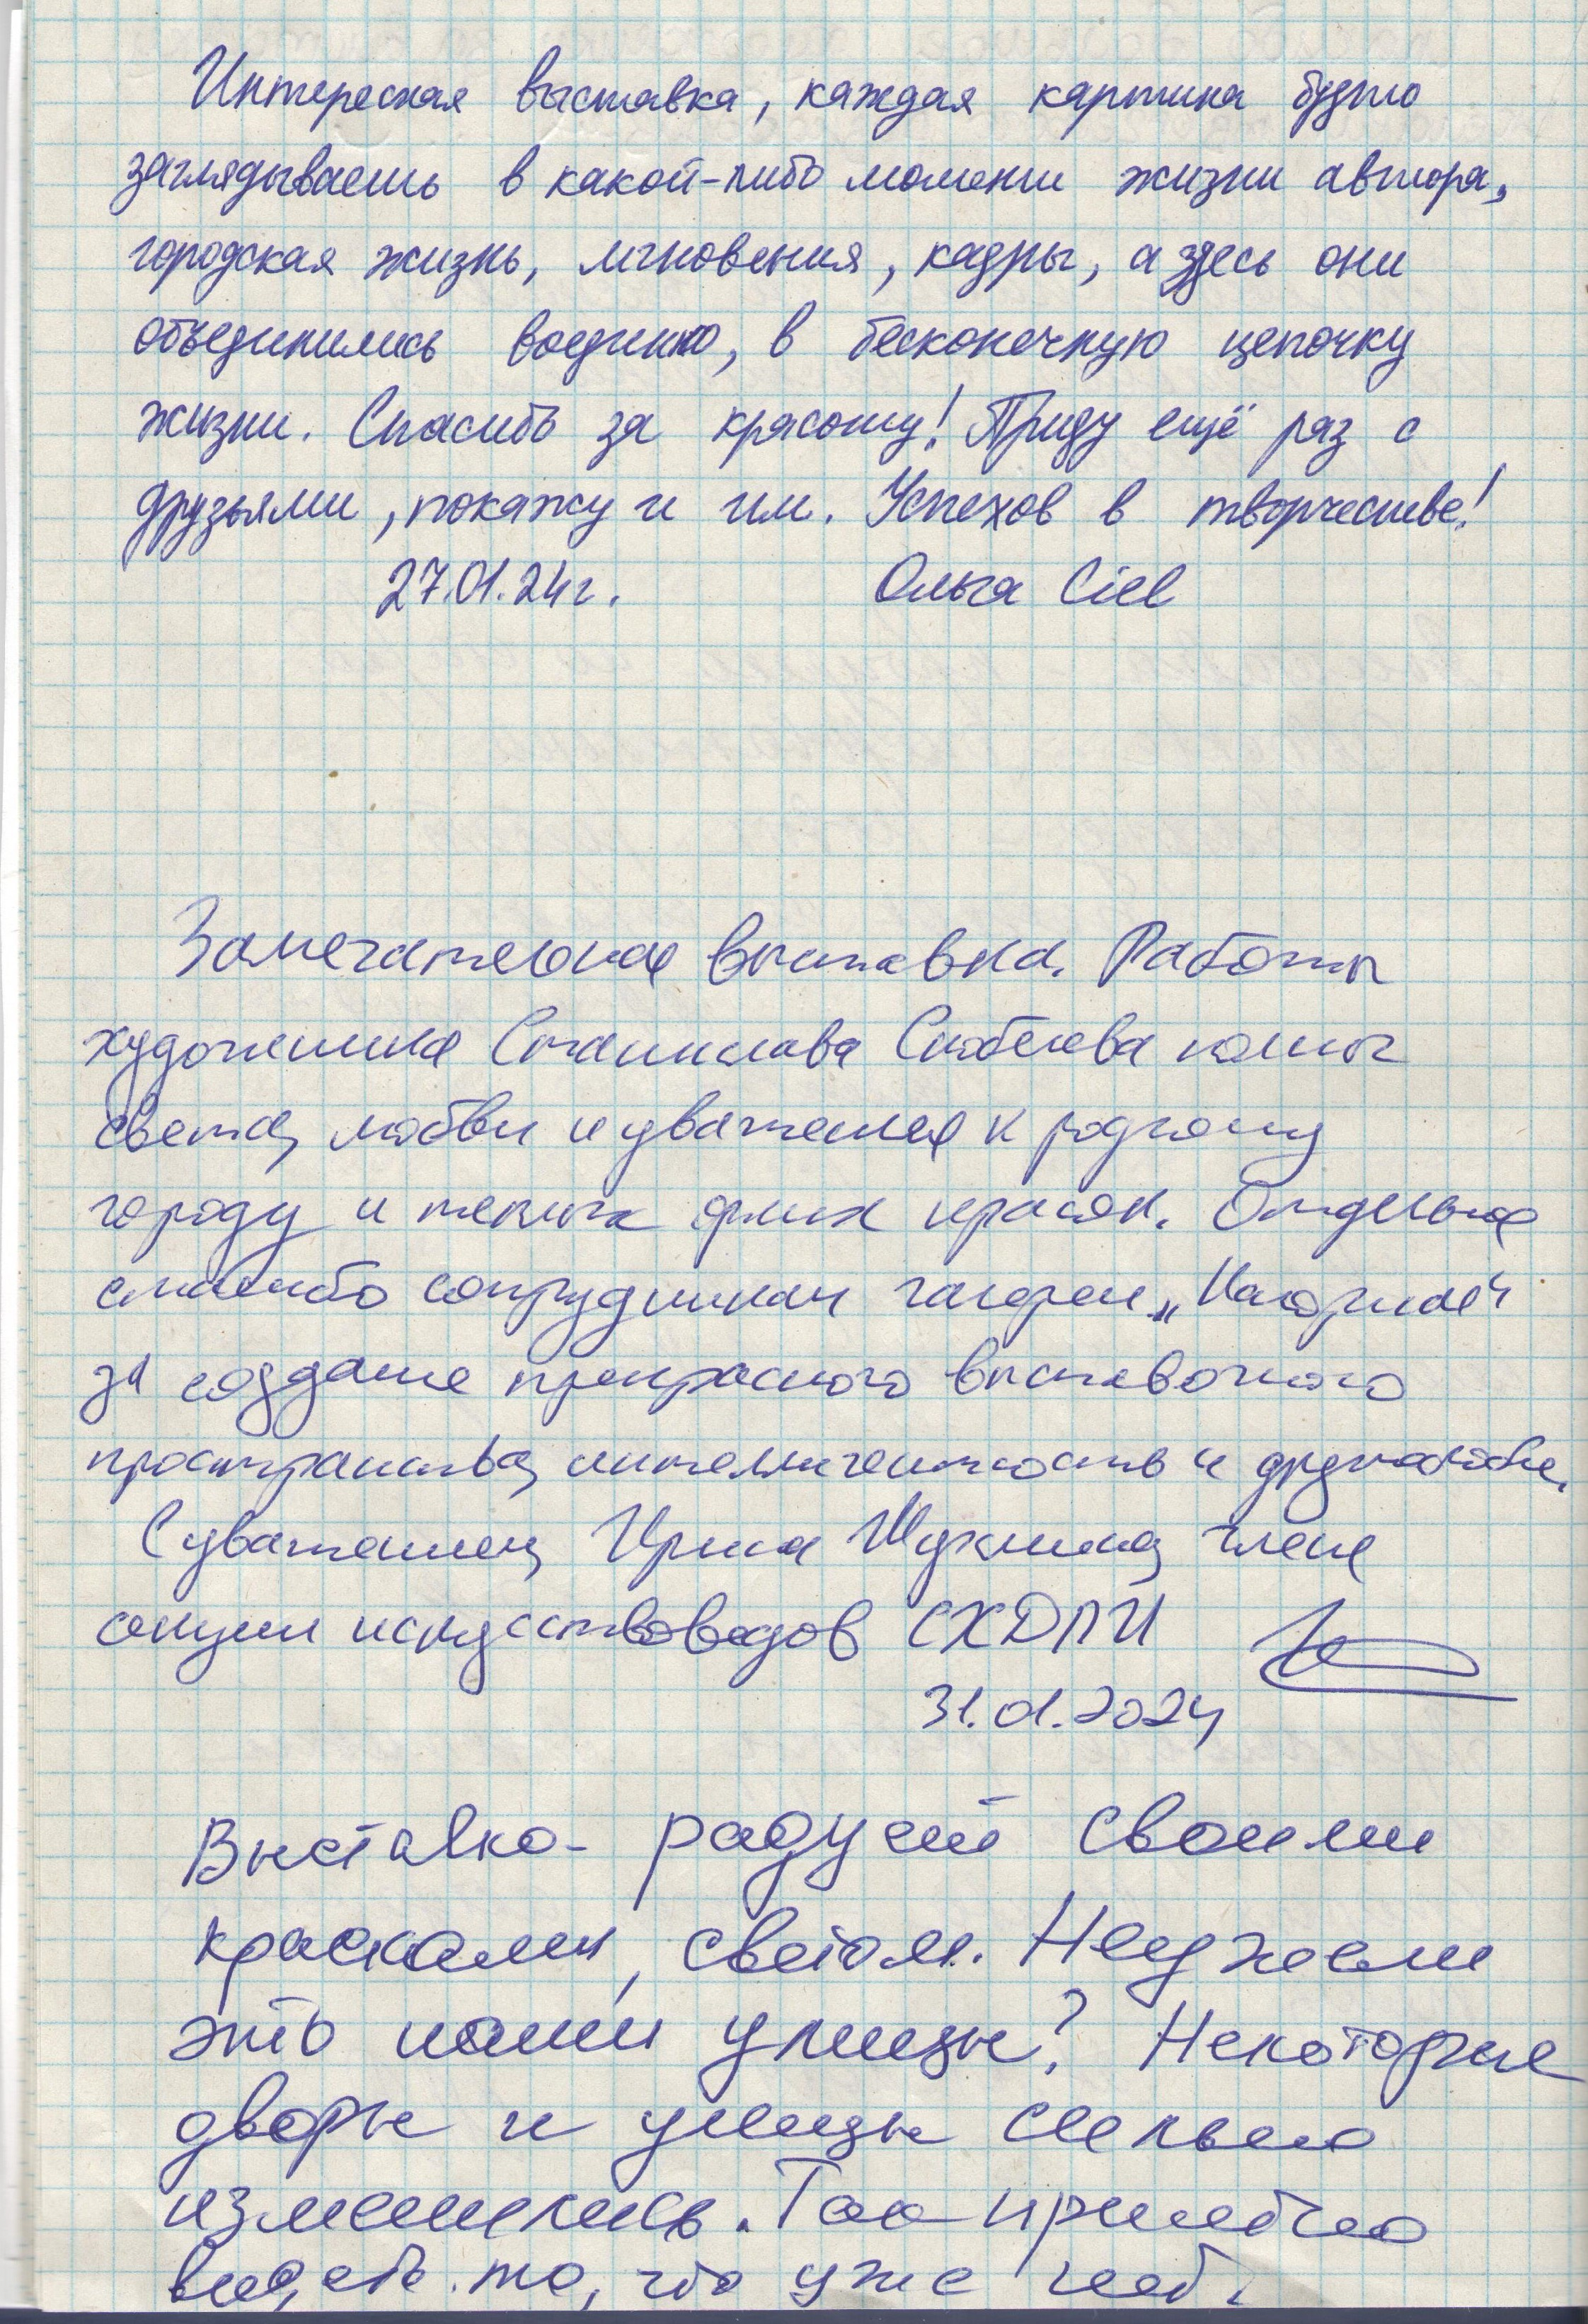 Интересная выставка, каждая картина будто
заглядываешь в какой-либо момент жизни автора,
городская жизнь, мгновения, кадры, а здесь они
объединились воедино, в бесконечную цепочку
жизни. Спасибо за красоту! Приду ещё раз с
друзьями, покажу и им. Успехов в творчестве!
27.01.24г. Ольга Ciel
Замечательная выставка. Работы
художника Станислава полны
света, любви и уважения к родному
городу и теплых ярких красок. Отдельное
спасибо сотрудникам галереи „Нагорная“
за создание прекрасного выставочного
пространства, интеллигентность и дружелюбие.
С уважением, Ирина член
секции искусствоведов СХДПИ
31.01.2024
Выставка - радует своими
красками, светом. Неужели
это наши улицы? Некоторые
дворы и улицы сильно
изменились. Так приятно
видеть то, что уже нет.